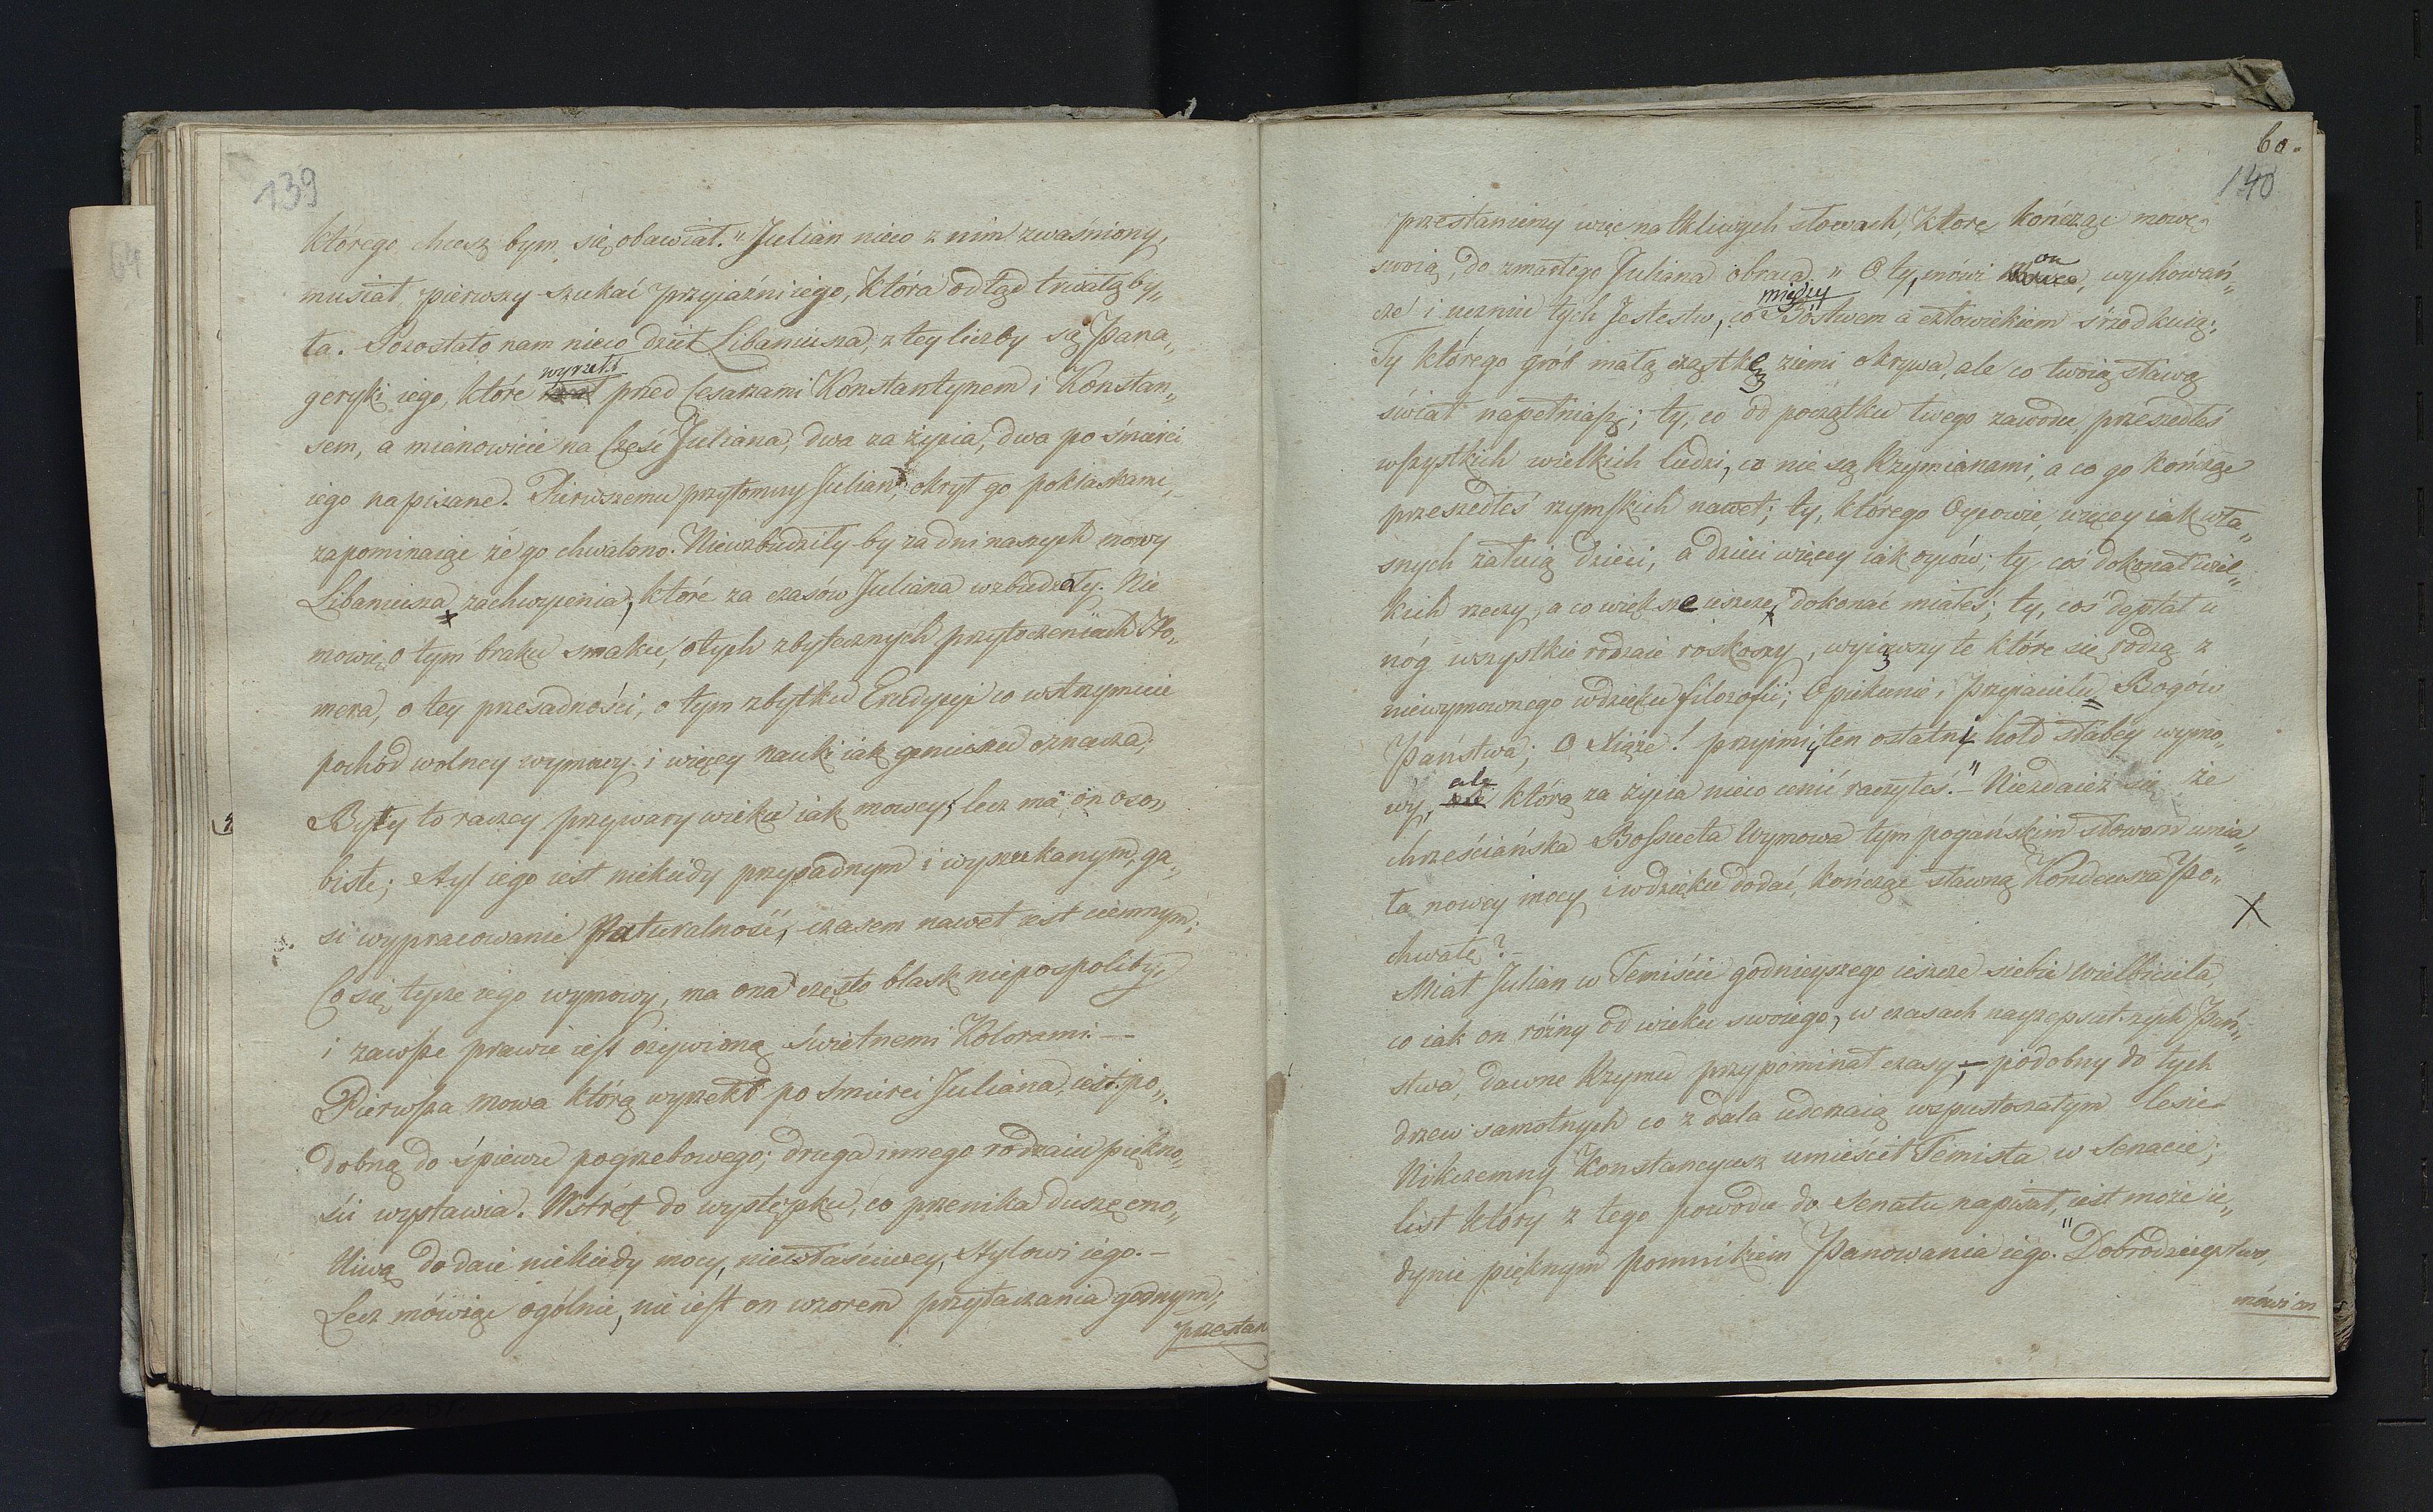 139
którego chcesz bym się obawiał." Julian nieco z nim zwaśniony,
musiał pierwszy szukać przyjaźni iego, która odtąd trwałą by„
ła. Pozostało nam nieco dzieł Libaniusza, z tey liczby są Pana„
geryki iego, które wyrzekł przed Cesarzami Konstantynem i Konstan„
sem, a mianowicie na Cześć Juliana, dwa za życia, dwa po śmierci
iego napisane. Pierwszemu przytomny Julian, okrył go poklaskami,
zapominaiąc że go chwalono. Niewzbudziły by za dni naszych mowy
Libaniusza zachwycenia, które za czasów Juliana wzbudzały. Nie
mowię o tym braku smaku, o tych zbytecznych przytoczeniach Ho„
mera, o tey przesadności, o tym zbytku Erudycyi co wstrzymuie
pochód wolney wymowy i więcey nauki iak geniuszu oznacza;
Były to raczey przywary wieku iak mowcy; lecz ma on oso„
biste; styl iego iest niekiedy przysadnym i wyszukanym, ga„
si wypracowanie Naturalność, czasem nawet iest ciemnym;
Co się tycze iego wymowy, ma ona często blask niepospolity,
i zawsze prawie iest ożywioną świetnemi Kolorami. —
Pierwsza mowa którą wyrzekł po śmierci Juliana, iest po„
dobną do śpiewu pogrzebowego; druga innego rodzaiu piękno„
ści wystawia. Wstręt do występku, co przenika duszę cno„
tliwą dodaie niekiedy mocy, niewłaściwey, stylowi iego. —
Lecz mówiąc ogólnie, nie iest on wzorem przytaczania godnym,
przestan
60.
140
przestaniemy więc na tkliwych słowach, które kończąc mowę
swoią, do zmarłego Juliana obraca. „ O ty, mówi on, wychowań„
cze i uczniu tych Jestestw, co między Bóstwem a człowiekiem śrzodkuią;
Ty którego grób małą cząstkę ziemi okrywa, ale co twoią sławą
świat napełniasz; ty, co od początku twego zawodu, przeszedłeś
wszystkich wielkich ludzi, co nie są Rzymianami, a co go kończąc
przeszedłeś rzymskich nawet; ty, którego Oycowie, więcey iak wła„
snych żałuią dzieci, a dzieci więcey iak oyców; ty, coś dokonał wiel„
kich rzeczy, a co większe ieszcze, dokonać miałeś; ty, coś deptał u
nóg wszystkie rodzaie roskoszy, wyiąwszy te które się rodzą z
niewymownego wdzięku filozofii; Opiekunie, przyiacielu Bogów
Państwa; O Xiąże! przyimiy ten ostatni hołd słabey wymo„
wy, ale którą za życia nieco cenić raczyłeś." – Niezdaież się że
chrześciańska Bossueta Wymowa tym pogańskim słowom umia„
ła nowey mocy i wdzięku dodać, kończąc sławną Kondeusza Po„
chwałę? –
Miał Julian w Temiście godnieyszego ieszcze siebie wielbiciela,
co iak on różny od wieku swoiego, w czasach nayzepsutszych Pań„
stwa, dawne Rzymu przypominał czasy; – podobny do tych
drzew samotnych co z dala uderzaią w spustoszałym lesie
Nikczemny Konstancyusz umieścił Temista w Senacie;
list który z tego powodu do Senatu napisał, iest może ie„
dynie pięknym pomnikiem Panowania iego. "Dobrodzieystwo,
mówi on